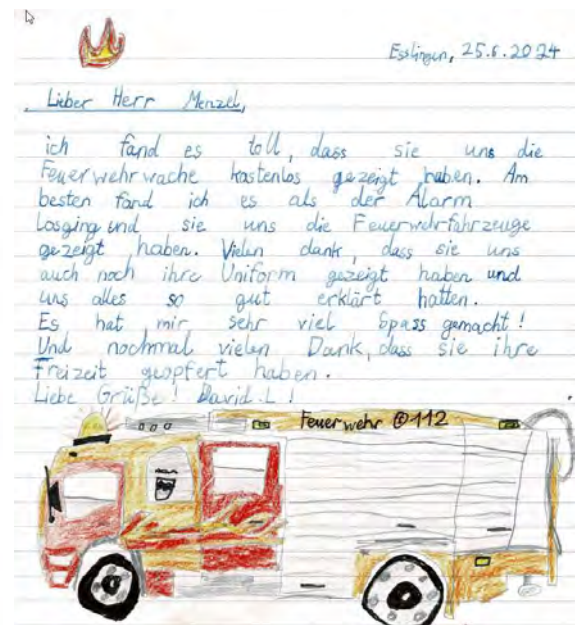 Esslingen, 25.6.2024
Lieber Herr Menzel,
ich fand es toll, dass sie uns die
Feuerwehrwache kostenlos gezeigt haben. Am
besten fand ich es als der Alarm
losging und sie uns die Feuerwehrfahrzeuge
gezeigt haben. Vielen dank, dass sie uns
auch noch ihre Uniform gezeigt haben und
uns alles so gut erklärt hatten.
Es hat mir sehr viel Spass gemacht!
Und nochmal vielen Dank, dass sie ihre
Freizeit geopfert haben.
Liebe Grüße! David L!
Feuerwehr @112